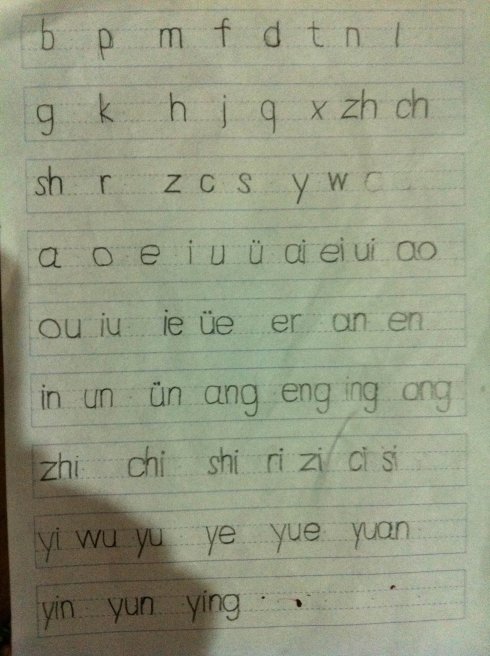 b p m f d t n l
g k h j q x zh ch
sh r z c s y w
a o e i u ü ai ei ui ao
ou iu ie üe er an en
in un ün ang eng ing ong
zhi chi shi ri zi ci si
yi wu yu ye yue yuan
yin yun ying